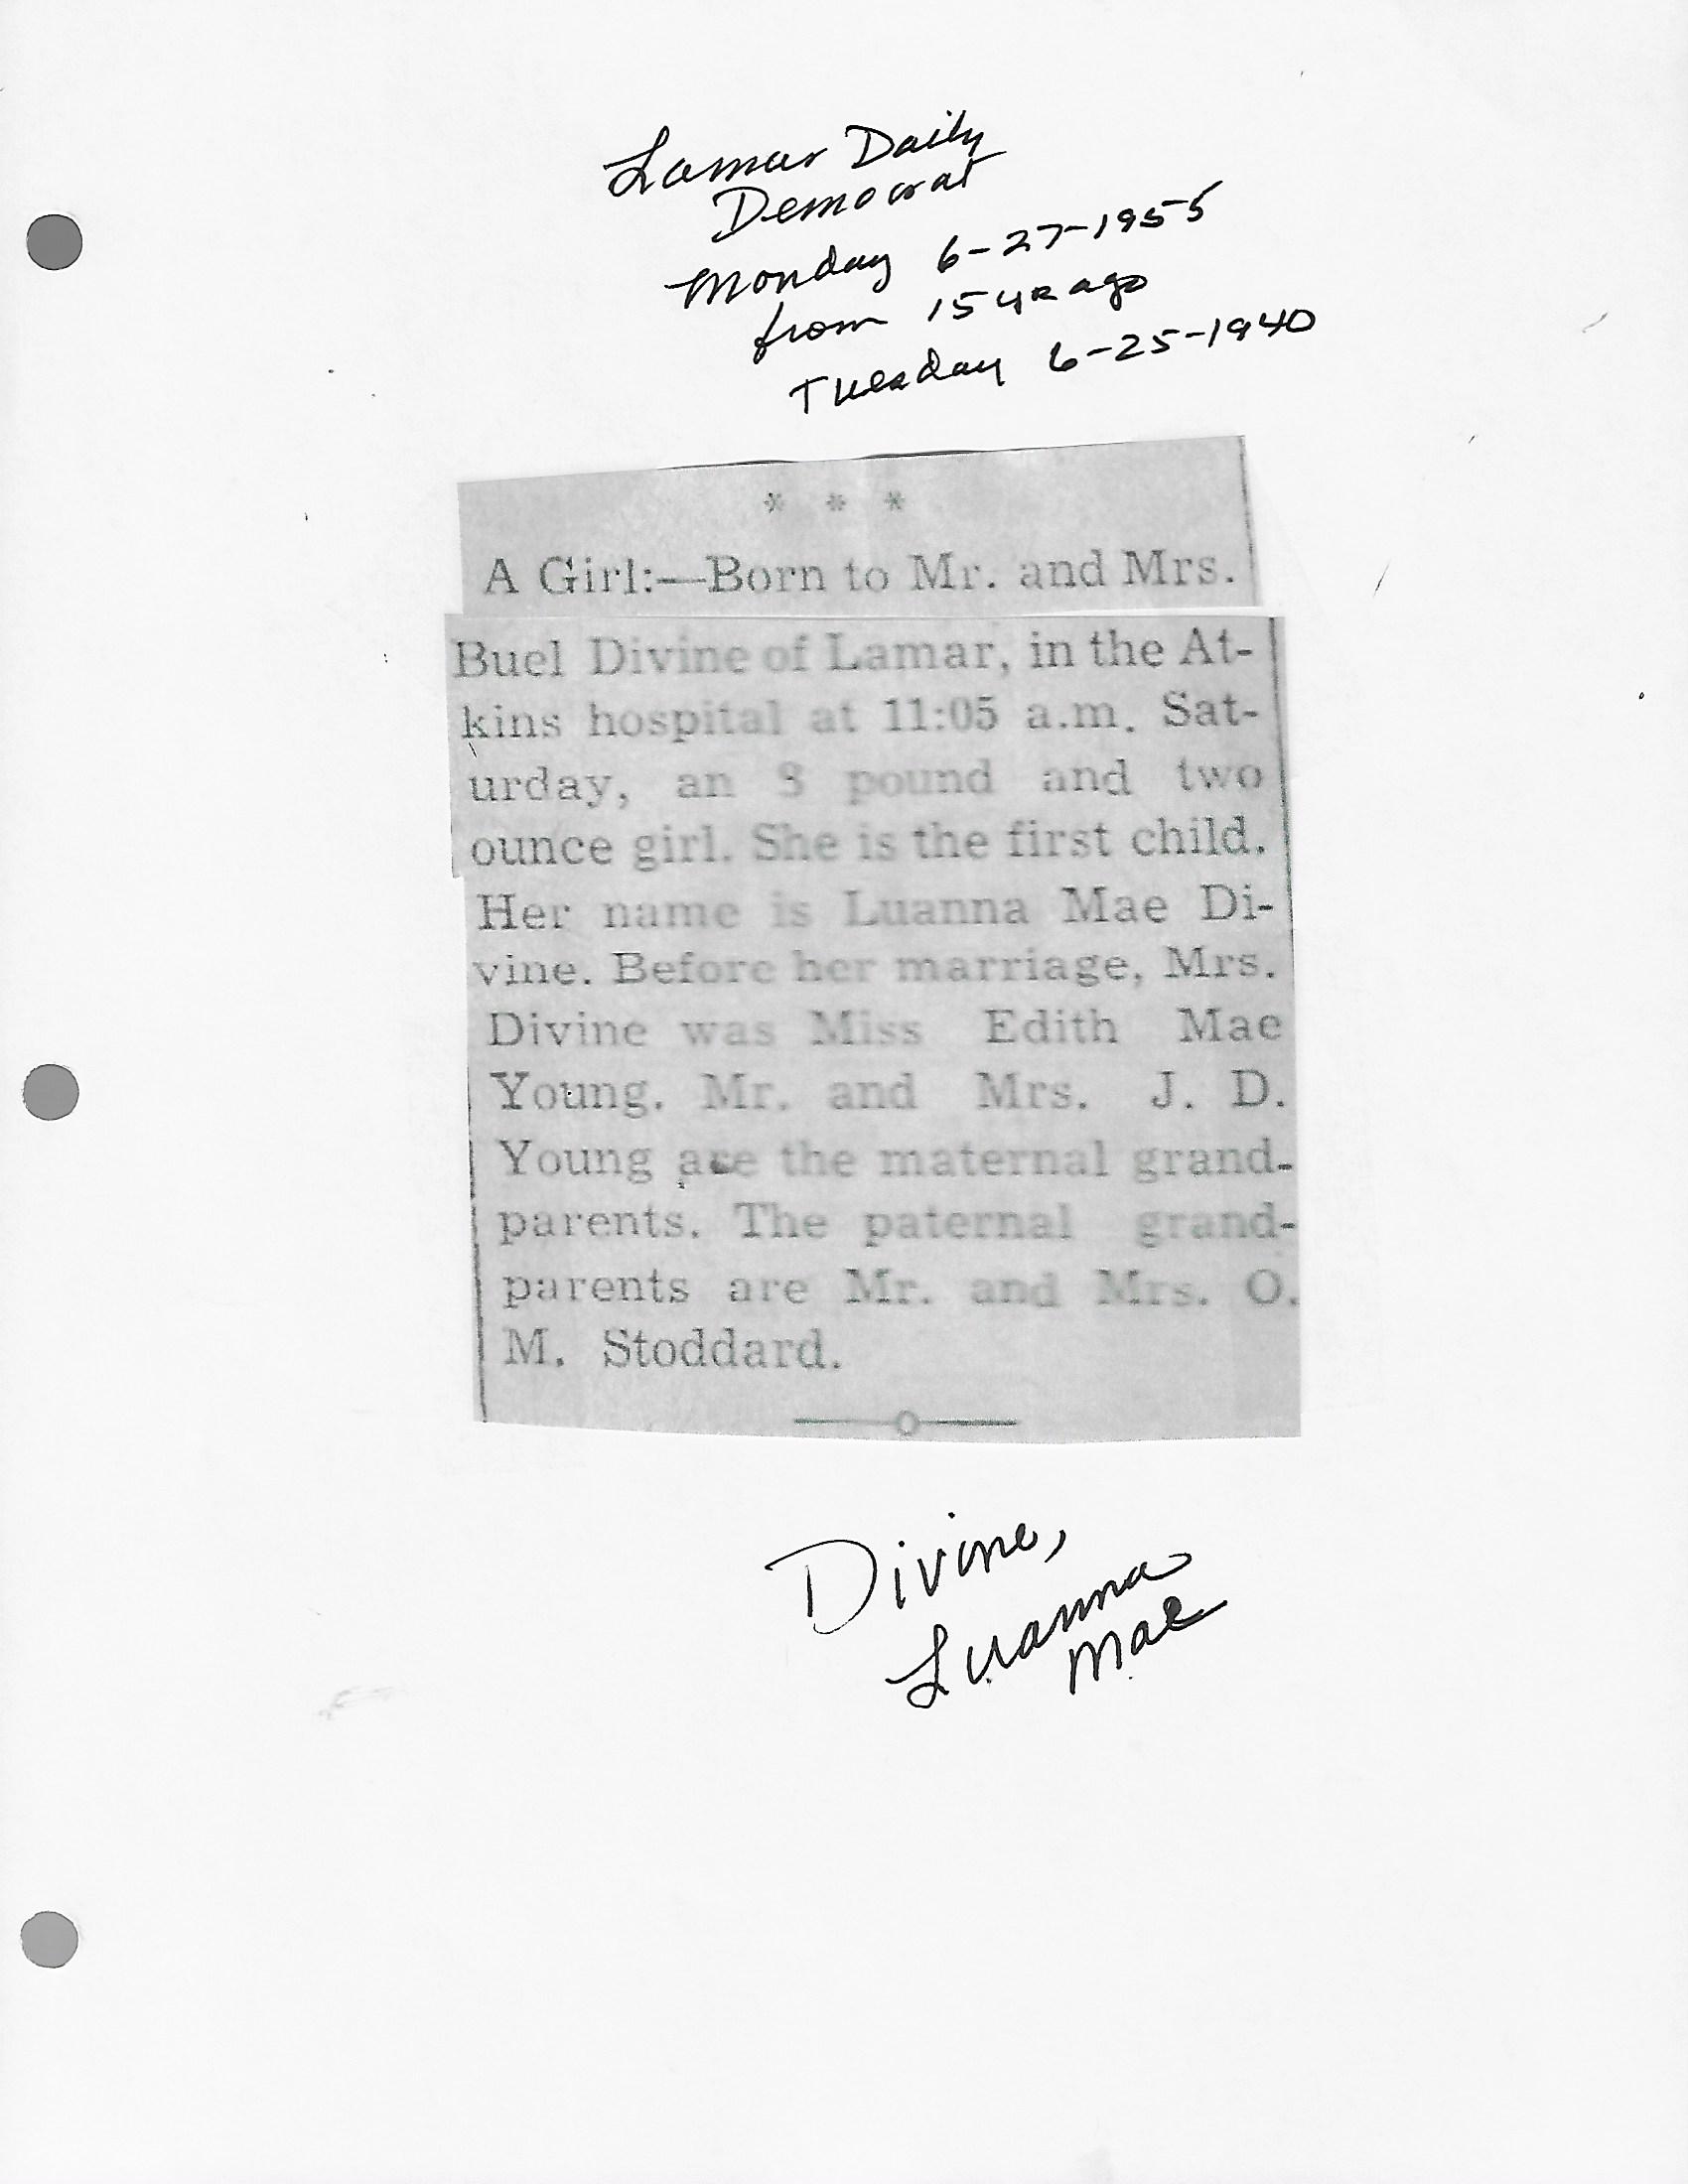 Lamar Daily
Democrat
Monday 6-27-1955
from 15 yr ago
Tuesday 6-25-1940
* * *
A Girl:—Born to Mr. and Mrs.
Buel Divine of Lamar, in the At-
kins hospital at 11:05 a.m. Sat-
urday, an 8 pound and two
ounce girl. She is the first child.
Her name is Luanna Mae Di-
vine. Before her marriage, Mrs.
Divine was Miss Edith Mae
Young. Mr. and Mrs. J. D.
Young are the maternal grand-
parents. The paternal grand-
parents are Mr. and Mrs. O.
M. Stoddard.
Divine,
Luanna
Mae